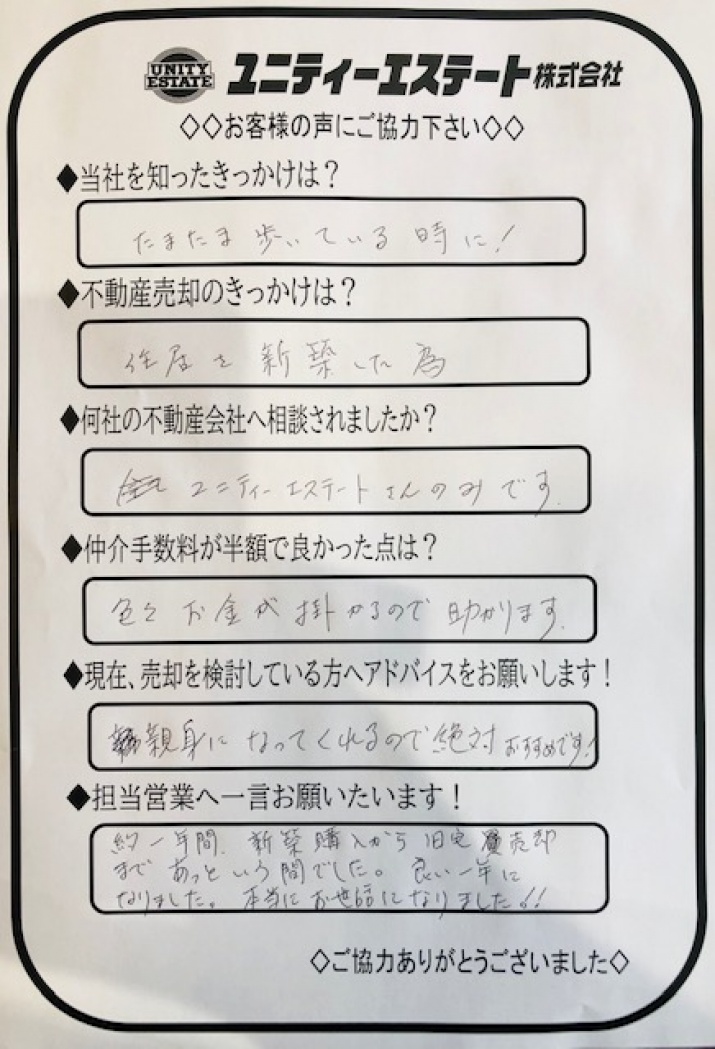 UNITY
ESTATE
ユニティーエステート株式会社
◇◇お客様の声にご協力下さい◇◇
◆当社を知ったきっかけは？
たまたま歩いている時に！
◆不動産売却のきっかけは？
住居を新築した為
◆何社の不動産会社へ相談されましたか？
ユニティーエステートさんのみです。
◆仲介手数料が半額で良かった点は？
色々お金が掛かるので助かります。
◆現在、売却を検討している方へアドバイスをお願いします！
親身になってくれるので絶対おすすめです！
◆担当営業へ一言お願いたいます！
約一年間、新築購入から旧宅売却
まであっという間でした。良い一年に
なりました。本当にお世話になりました！！
◇ご協力ありがとうございました◇